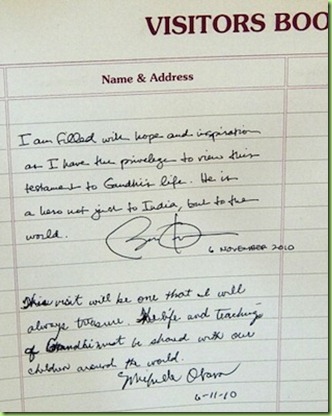 VISITORS BOO
Name & Address
I am filled with hope and inspiration
as I have the privilege to view this
testament to Gandhi's life. He is
a hero not just to India, but to the
world.
6 NOVEMBER 2010
This visit will be one that I will
always treasure. The life and teachings
of Gandhi must be shared with our
children around the world.
Michelle Obama
6-11-10